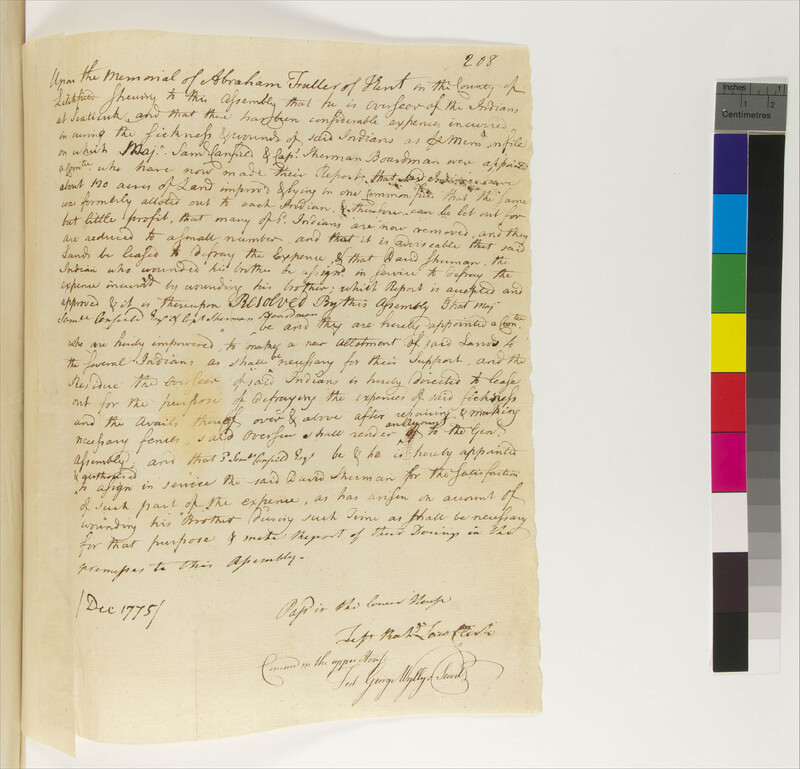 208
Upon the Memorial of Abraham Fuller of Kent in the County of
Litchfield Shewing to this Assembly that he is overseer of the Indians
at Scaticuk, and that there has been considerable expence incurred
in curing the Sickness & wounds of said Indians as Memo on file
on which Majr. Saml Canfield & Capt. Sherman Boardman were appointed
a Comtee who have now made their Report, that said Indians have
about 120 acres of Land improvd & lying in one Common field that the same
was formerly alloted out to each Indian, & therefore can be let out for
but little profit, that many of sd. Indians are now removed, and they
are reduced to a small number, and that it is adviseable that said
Lands be leased to defray the Expence, & that David Sherman, the
Indian who wounded his brother be assignd in service to defray the
expence incurrd by wounding his brother; which Report is accepted and
approved & it is thereupon Resolved By this Assembly That Majr
Samll Canfield Esqr & Capt Sherman Boardman
be and they are hereby appointed a Comtee
who are hereby impowered, to make a new Allotment of said Lands to
the several Indians as shall be necessary for their Support, and the
Residue the overseer of said Indians is hereby directed to lease
out for the purpose of defraying the expences of said Sickness
and the avails thereof over & above after repairing & making
necessary fences, said Overseer shall render an Account to the Genl
Assembly, and that sd Samll Canfield Esqr be & he is hereby appointed
& authorised
to assign in service the said David Sherman for the Satisfaction
of such part of the expence, as has arisen on account of
wounding his Brother During such Time as shall be necessary
for that purpose & make Report of their Doings in the
premesses to this Assembly.
/Dec 1775/
Passd in the lower House
Test Clerk
Concurrd in the upper House
Test George Wyllys Secrety
Inches 1
1 2
Centimetres